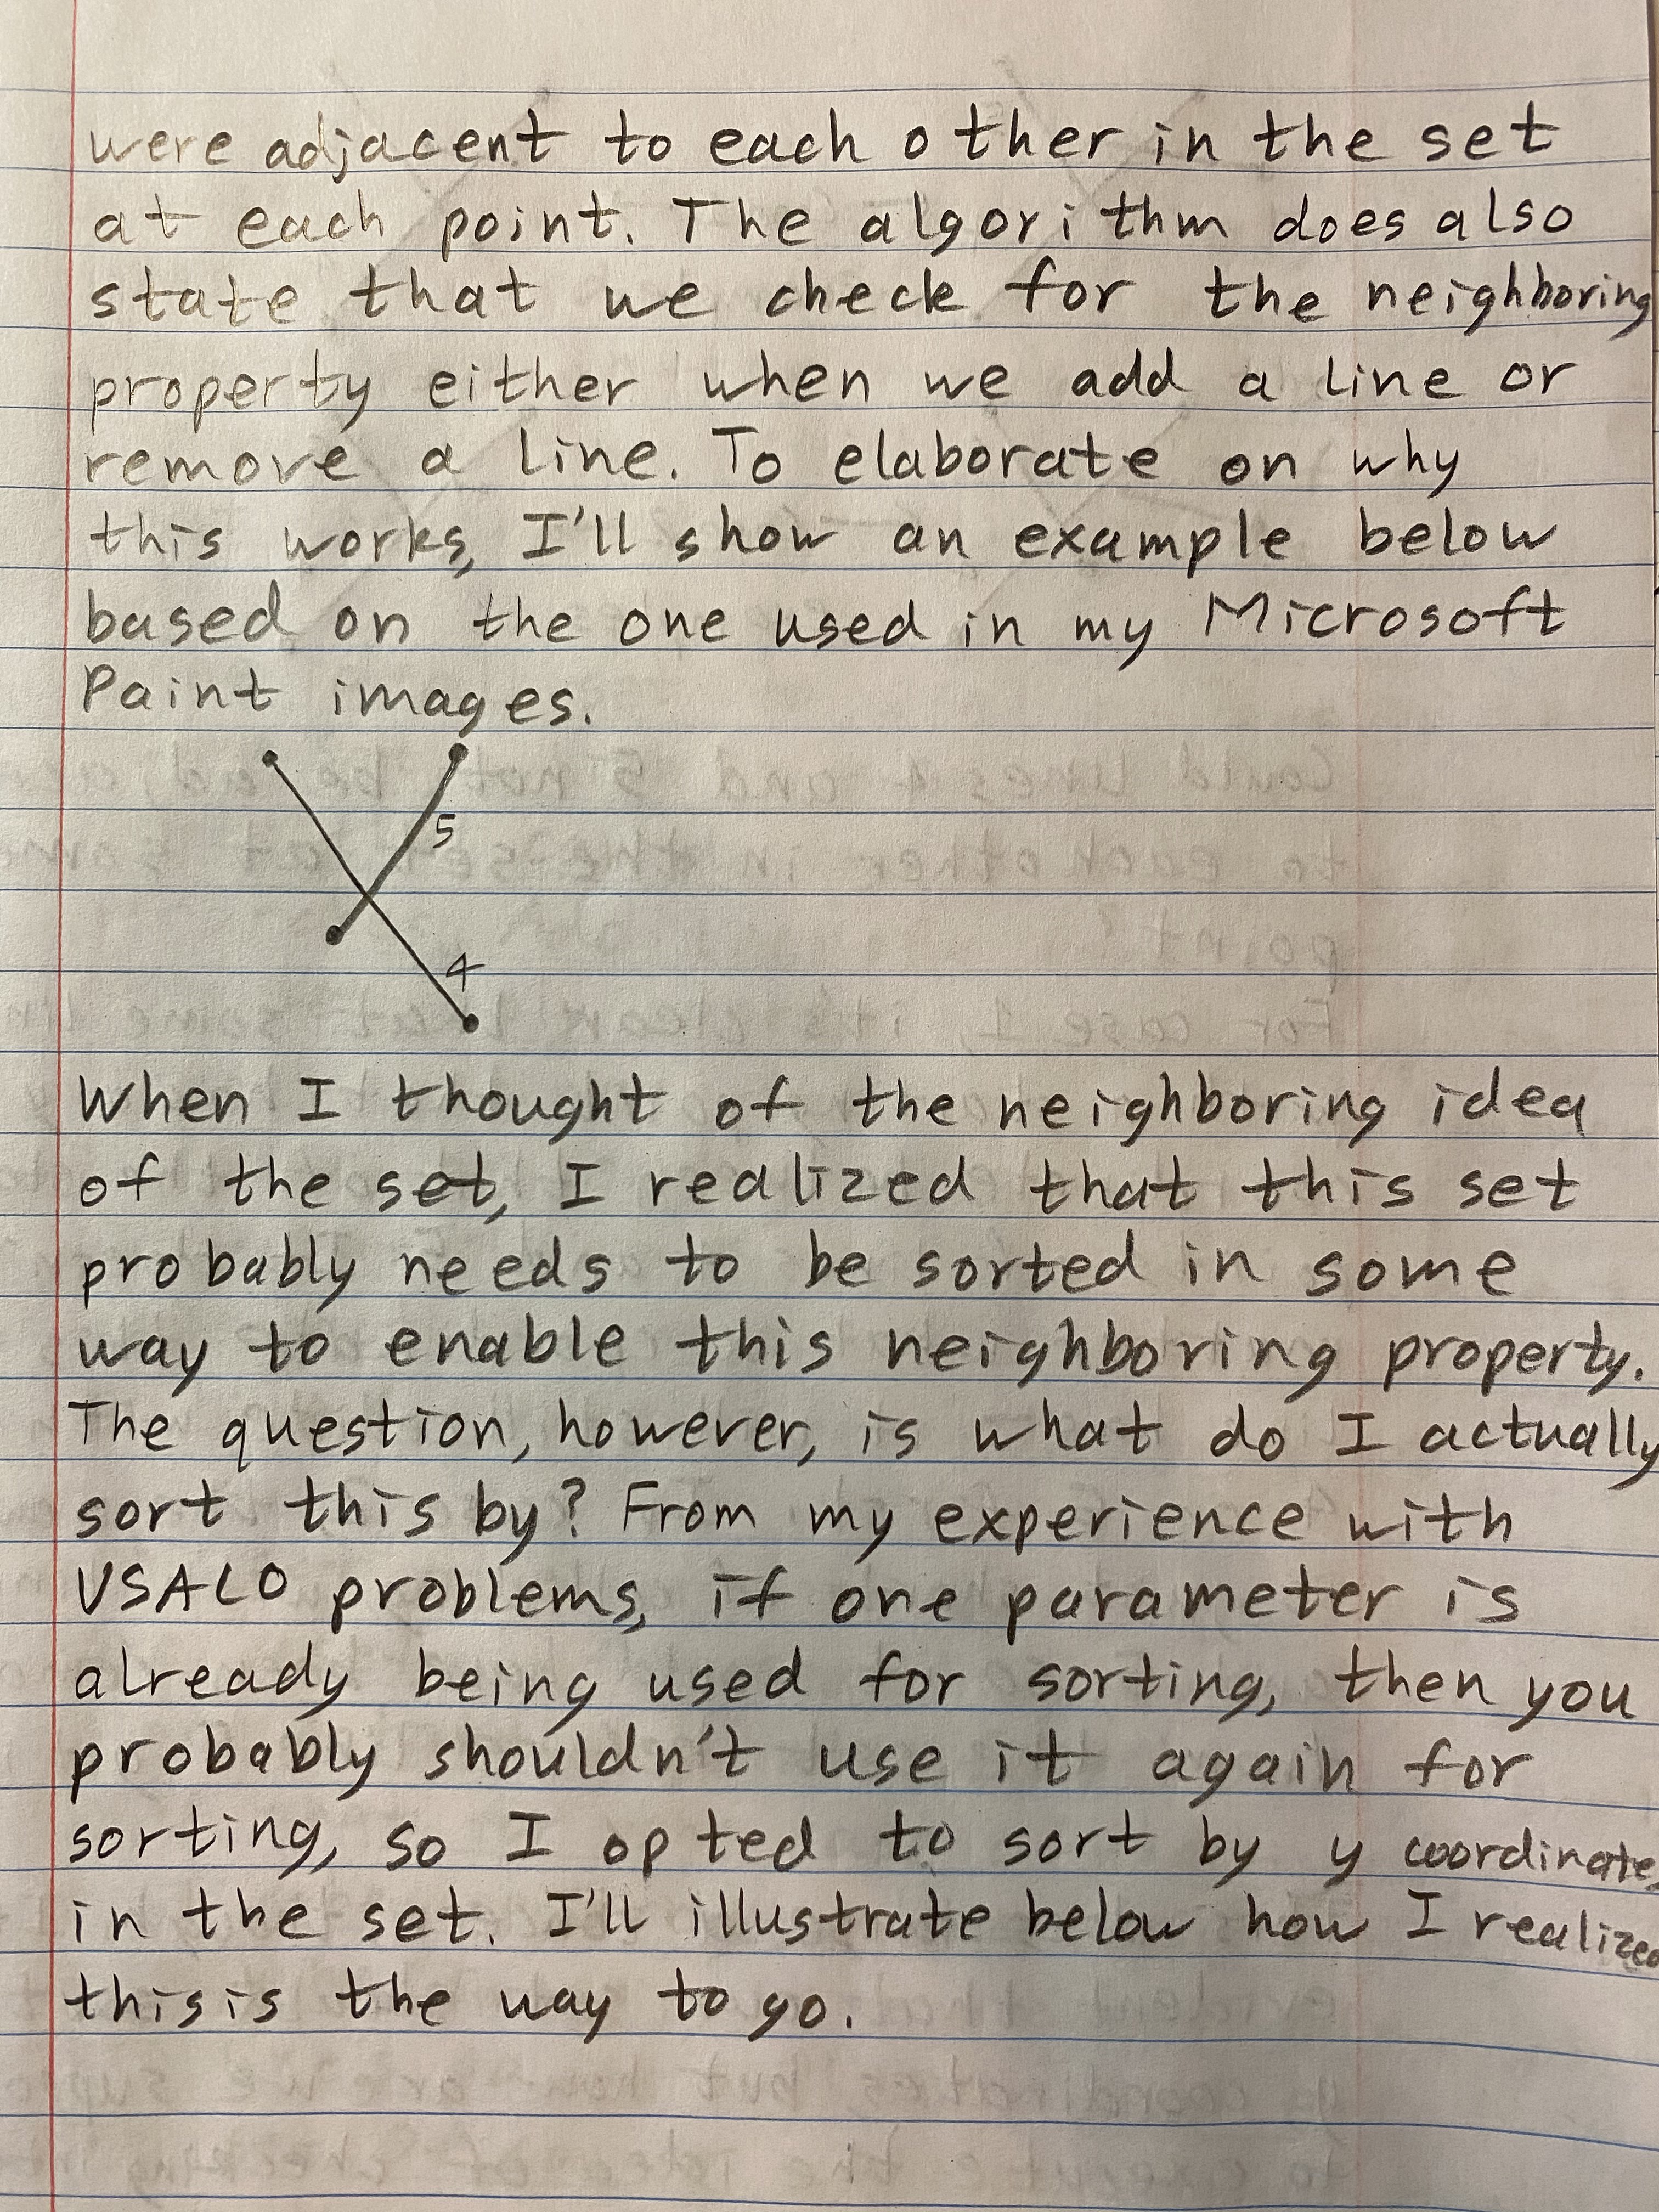 were adjacent to each other in the set
at each point. The algorithm does also
state that we check for the neighboring
property either when we add a line or
remove a line. To elaborate on why
this works, I'll show an example below
based on the one used in my Microsoft
Paint images.
5
4
When I thought of the neighboring idea
of the set, I realized that this set
probably needs to be sorted in some
way to enable this neighboring property.
The question, however, is what do I actually
sort this by? From my experience with
USACO problems, if one parameter is
already being used for sorting, then you
probably shouldn't use it again for
sorting, so I opted to sort by y coordinates
in the set. I'll illustrate below how I realized
this is the way to go.